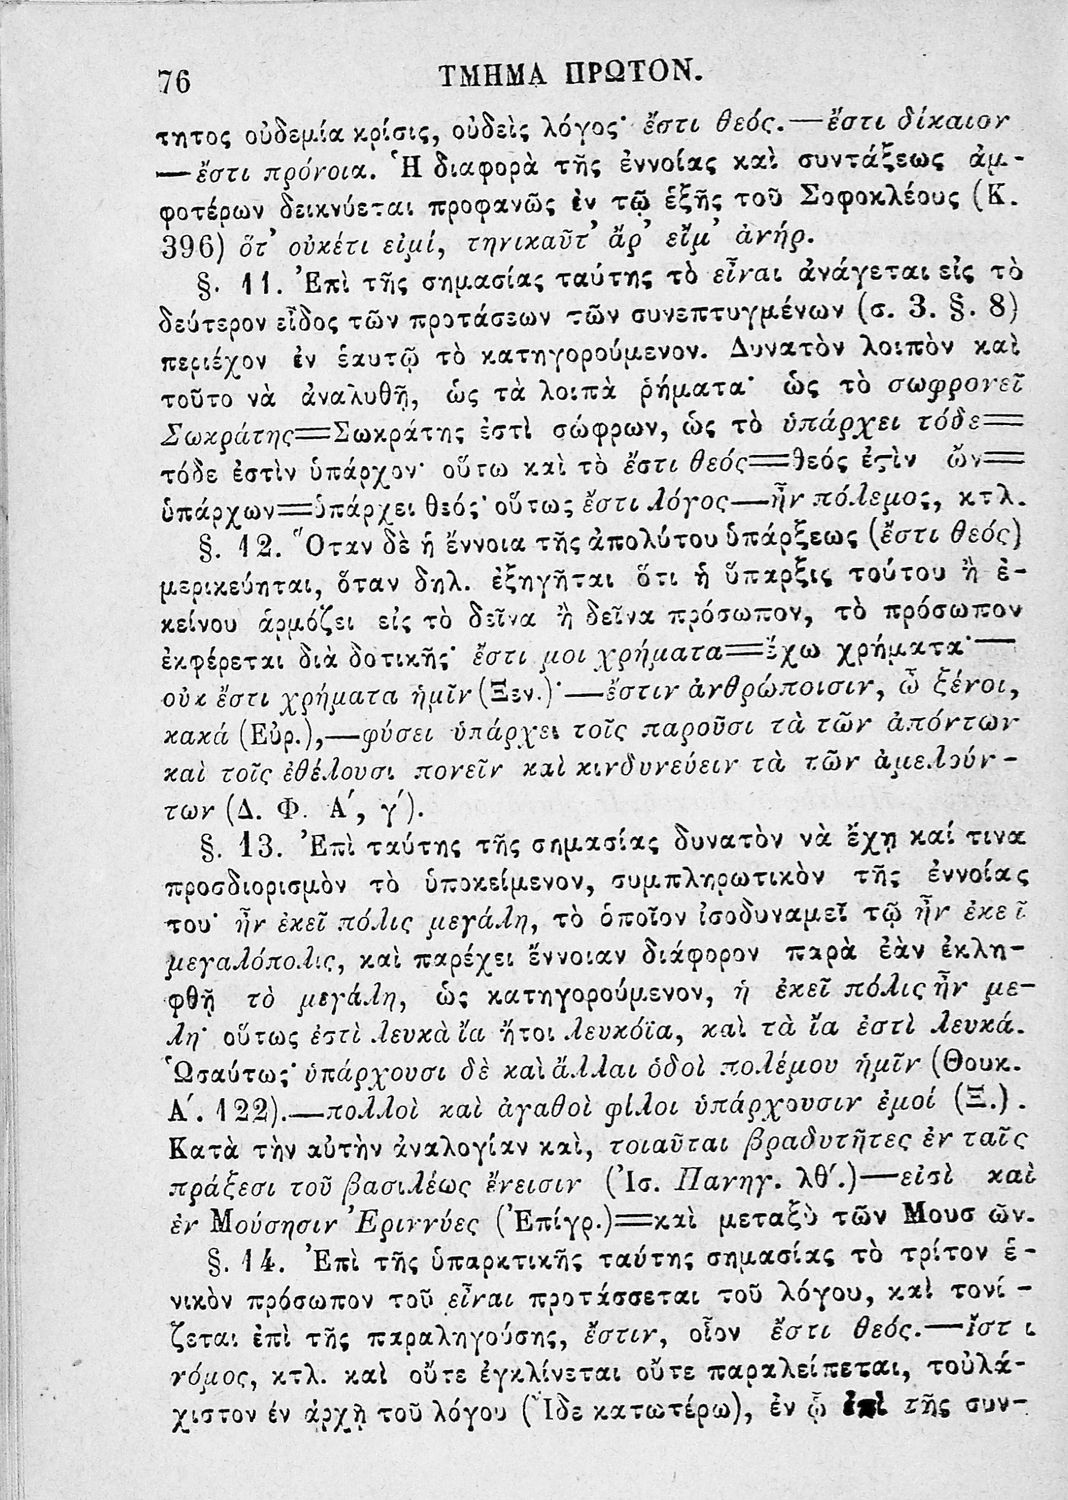 76
ΤΜΗΜΑ ΠΡΩΤΟΝ.
τητος οὐδεμία κρίσις, οὐδεὶς λόγος· ἔστι θεός.—ἔστι δίκαιον
—ἔστι πρόνοια. Ἡ διαφορὰ τῆς ἐννοίας καὶ συντάξεως ἀμ-
φοτέρων δεικνύεται προφανῶς ἐν τῷ ἑξῆς τοῦ Σοφοκλέους (Κ.
396) ὅτ' οὐκέτι εἰμί, τηνικαῦτ' ἄρ' εἴμ' ἀνήρ.
§. 11. Ἐπὶ τῆς σημασίας ταύτης τὸ εἶναι ἀνάγεται εἰς τὸ
δεύτερον εἶδος τῶν προτάσεων τῶν συνεπτυγμένων (σ. 3. §. 8)
περιέχον ἐν ἑαυτῷ τὸ κατηγορούμενον. Δυνατὸν λοιπὸν καὶ
τοῦτο νὰ ἀναλυθῇ, ὡς τὰ λοιπὰ ῥήματα· ὡς τὸ σωφρονεῖ
Σωκράτης=Σωκράτης ἐστὶ σώφρων, ὡς τὸ ὑπάρχει τόδε=
τόδε ἐστὶν ὑπάρχον· οὕτω καὶ τὸ ἔστι θεός=θεός ἐστὶν ὢν=
ὑπάρχων=ὑπάρχει θεός· οὕτως ἔστι λόγος—ἦν πόλεμος, κτλ.
§. 12. Ὅταν δὲ ἡ ἔννοια τῆς ἀπολύτου ὑπάρξεως (ἔστι θεός)
μερικεύηται, ὅταν δηλ. ἐξηγῆται ὅτι ἡ ὕπαρξις τούτου ἢ ἐ-
κείνου ἁρμόζει εἰς τὸ δεῖνα ἢ δεῖνα πρόσωπον, τὸ πρόσωπον
ἐκφέρεται διὰ δοτικῆς· ἔστι μοι χρήματα=ἔχω χρήματα·—
οὐκ ἔστι χρήματα ἡμῖν (Ξεν.)·—ἔστιν ἀνθρώποισιν, ὦ ξένοι,
κακά (Εὐρ.),—φύσει ὑπάρχει τοῖς παροῦσι τὰ τῶν ἀπόντων
καὶ τοῖς ἐθέλουσι πονεῖν καὶ κινδυνεύειν τὰ τῶν ἀμελούν-
των (Δ. Φ. Α', γ').
§. 13. Ἐπὶ ταύτης τῆς σημασίας δυνατὸν νὰ ἔχῃ καί τινα
προσδιορισμὸν τὸ ὑποκείμενον, συμπληρωτικὸν τῆς ἐννοίας
του· ἦν ἐκεῖ πόλις μεγάλη, τὸ ὁποῖον ἰσοδυναμεῖ τῷ ἦν ἐκεῖ
μεγαλόπολις, καὶ παρέχει ἔννοιαν διάφορον παρὰ ἐὰν ἐκλη-
φθῇ τὸ μεγάλη, ὡς κατηγορούμενον, ἡ ἐκεῖ πόλις ἦν με-
λη· οὕτως ἐστὶ λευκὰ ἴα ἤτοι λευκόϊα, καὶ τὰ ἴα ἐστὶ λευκά.
Ὡσαύτως· ὑπάρχουσι δὲ καὶ ἄλλαι ὁδοὶ πολέμου ἡμῖν (Θουκ.
Α'. 122).—πολλοὶ καὶ ἀγαθοὶ φίλοι ὑπάρχουσιν ἐμοί (Ξ.).
Κατὰ τὴν αὐτὴν ἀναλογίαν καὶ, τοιαῦται βραδυτῆτες ἐν ταῖς
πράξεσι τοῦ βασιλέως ἔνεισιν (Ἰσ. Πανηγ. λθ'.)—εἰσὶ καὶ
ἐν Μούσησιν Ἐριννύες (Ἐπίγρ.)=καὶ μεταξὺ τῶν Μουσῶν.
§. 14. Ἐπὶ τῆς ὑπαρκτικῆς ταύτης σημασίας τὸ τρίτον ἑ-
νικὸν πρόσωπον τοῦ εἶναι προτάσσεται τοῦ λόγου, καὶ τονί-
ζεται ἐπὶ τῆς παραληγούσης, ἔστιν, οἷον ἔστι θεός.—ἔστι
νόμος, κτλ. καὶ οὔτε ἐγκλίνεται οὔτε παραλείπεται, τοὐλά-
χιστον ἐν ἀρχῇ τοῦ λόγου (Ἴδε κατωτέρω), ἐν ᾧ ἐπὶ τῆς συν-